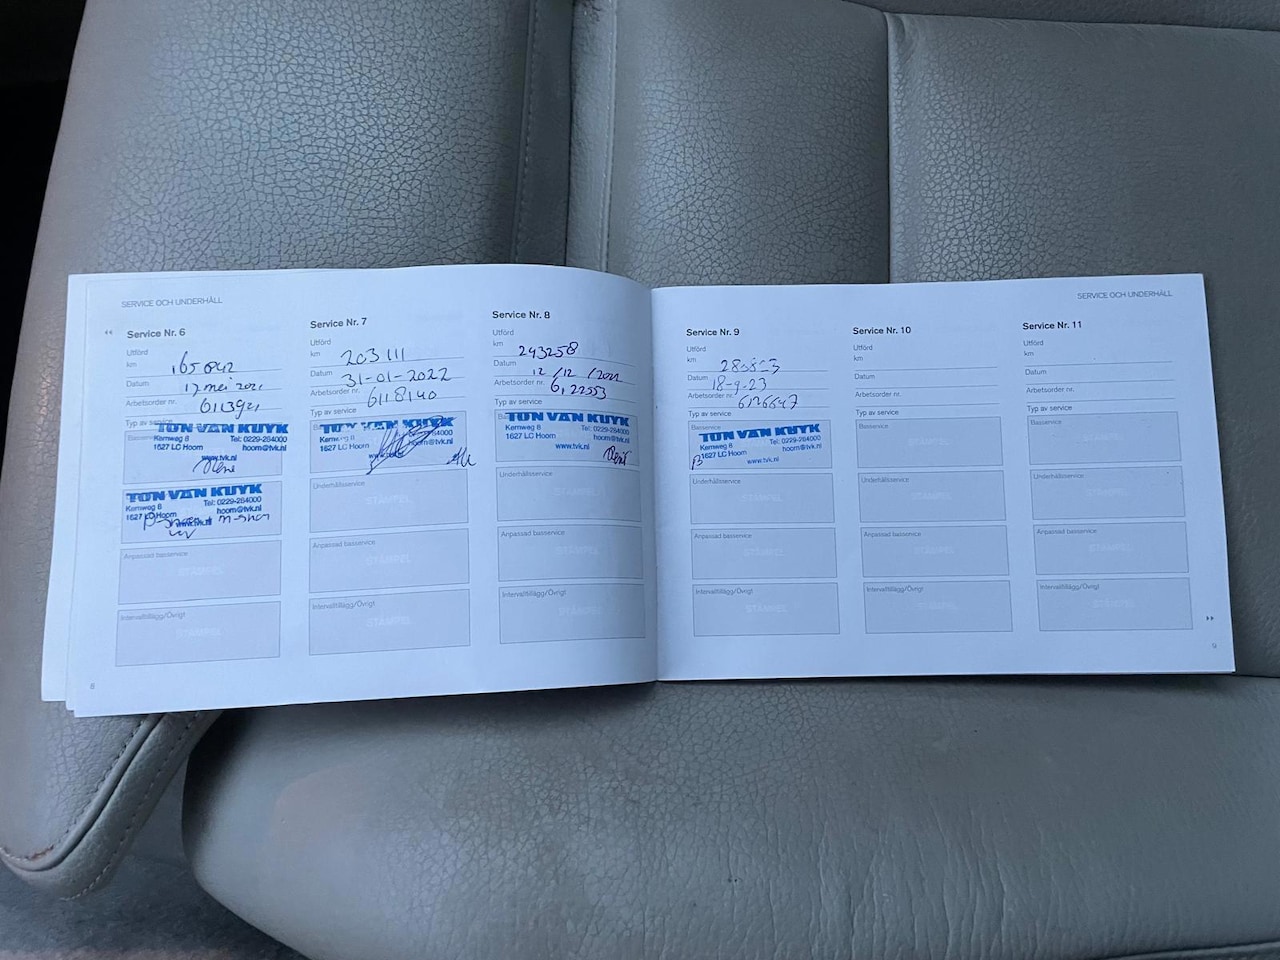 SERVICE OCH UNDERHÅLL
Service Nr. 6
Utförd
km 165842
Datum 17 mei 2021
Arbetsorder nr. 6113921
Typ av service
TON VAN KUYK
Kernweg 8 Tel: 0229-264000
1627 LC Hoorn hoorn@tvk.nl
www.tvk.nl
TON VAN KUYK
Kernweg 8 Tel: 0229-264000
1627 LC Hoorn hoorn@tvk.nl
www.tvk.nl
Anpassad basservice
STÄMPEL
Intervalltillägg/Övrigt
STÄMPEL
6
Service Nr. 7
Utförd
km 203111
Datum 31-01-2022
Arbetsorder nr. 6118140
Typ av service
TON VAN KUYK
Kernweg 8
1627 LC Hoorn hoorn@tvk.nl
Underhållsservice
STÄMPEL
Anpassad basservice
STÄMPEL
Intervalltillägg/Övrigt
STÄMPEL
Service Nr. 8
Utförd
km 243258
Datum 12/12/2022
Arbetsorder nr. 6122553
Typ av service
TON VAN KUYK
Kernweg 8 Tel: 0229-264000
1627 LC Hoorn hoorn@tvk.nl
www.tvk.nl
Underhållsservice
STÄMPEL
Anpassad basservice
STÄMPEL
Intervalltillägg/Övrigt
STÄMPEL
SERVICE OCH UNDERHÅLL
Service Nr. 9
Utförd
km
Datum 18-9-23
Arbetsorder nr.
Typ av service
Basservice
TON VAN KUYK
Kernweg 8 Tel: 0229-264000
1627 LC Hoorn hoorn@tvk.nl
www.tvk.nl
Underhållsservice
STÄMPEL
Anpassad basservice
STÄMPEL
Intervalltillägg/Övrigt
STÄMPEL
Service Nr. 10
Utförd
km
Datum
Arbetsorder nr.
Typ av service
Basservice
STÄMPEL
Underhållsservice
STÄMPEL
Anpassad basservice
STÄMPEL
Intervalltillägg/Övrigt
STÄMPEL
Service Nr. 11
Utförd
km
Datum
Arbetsorder nr.
Typ av service
Basservice
STÄMPEL
Underhållsservice
STÄMPEL
Anpassad basservice
STÄMPEL
Intervalltillägg/Övrigt
STÄMPEL
9